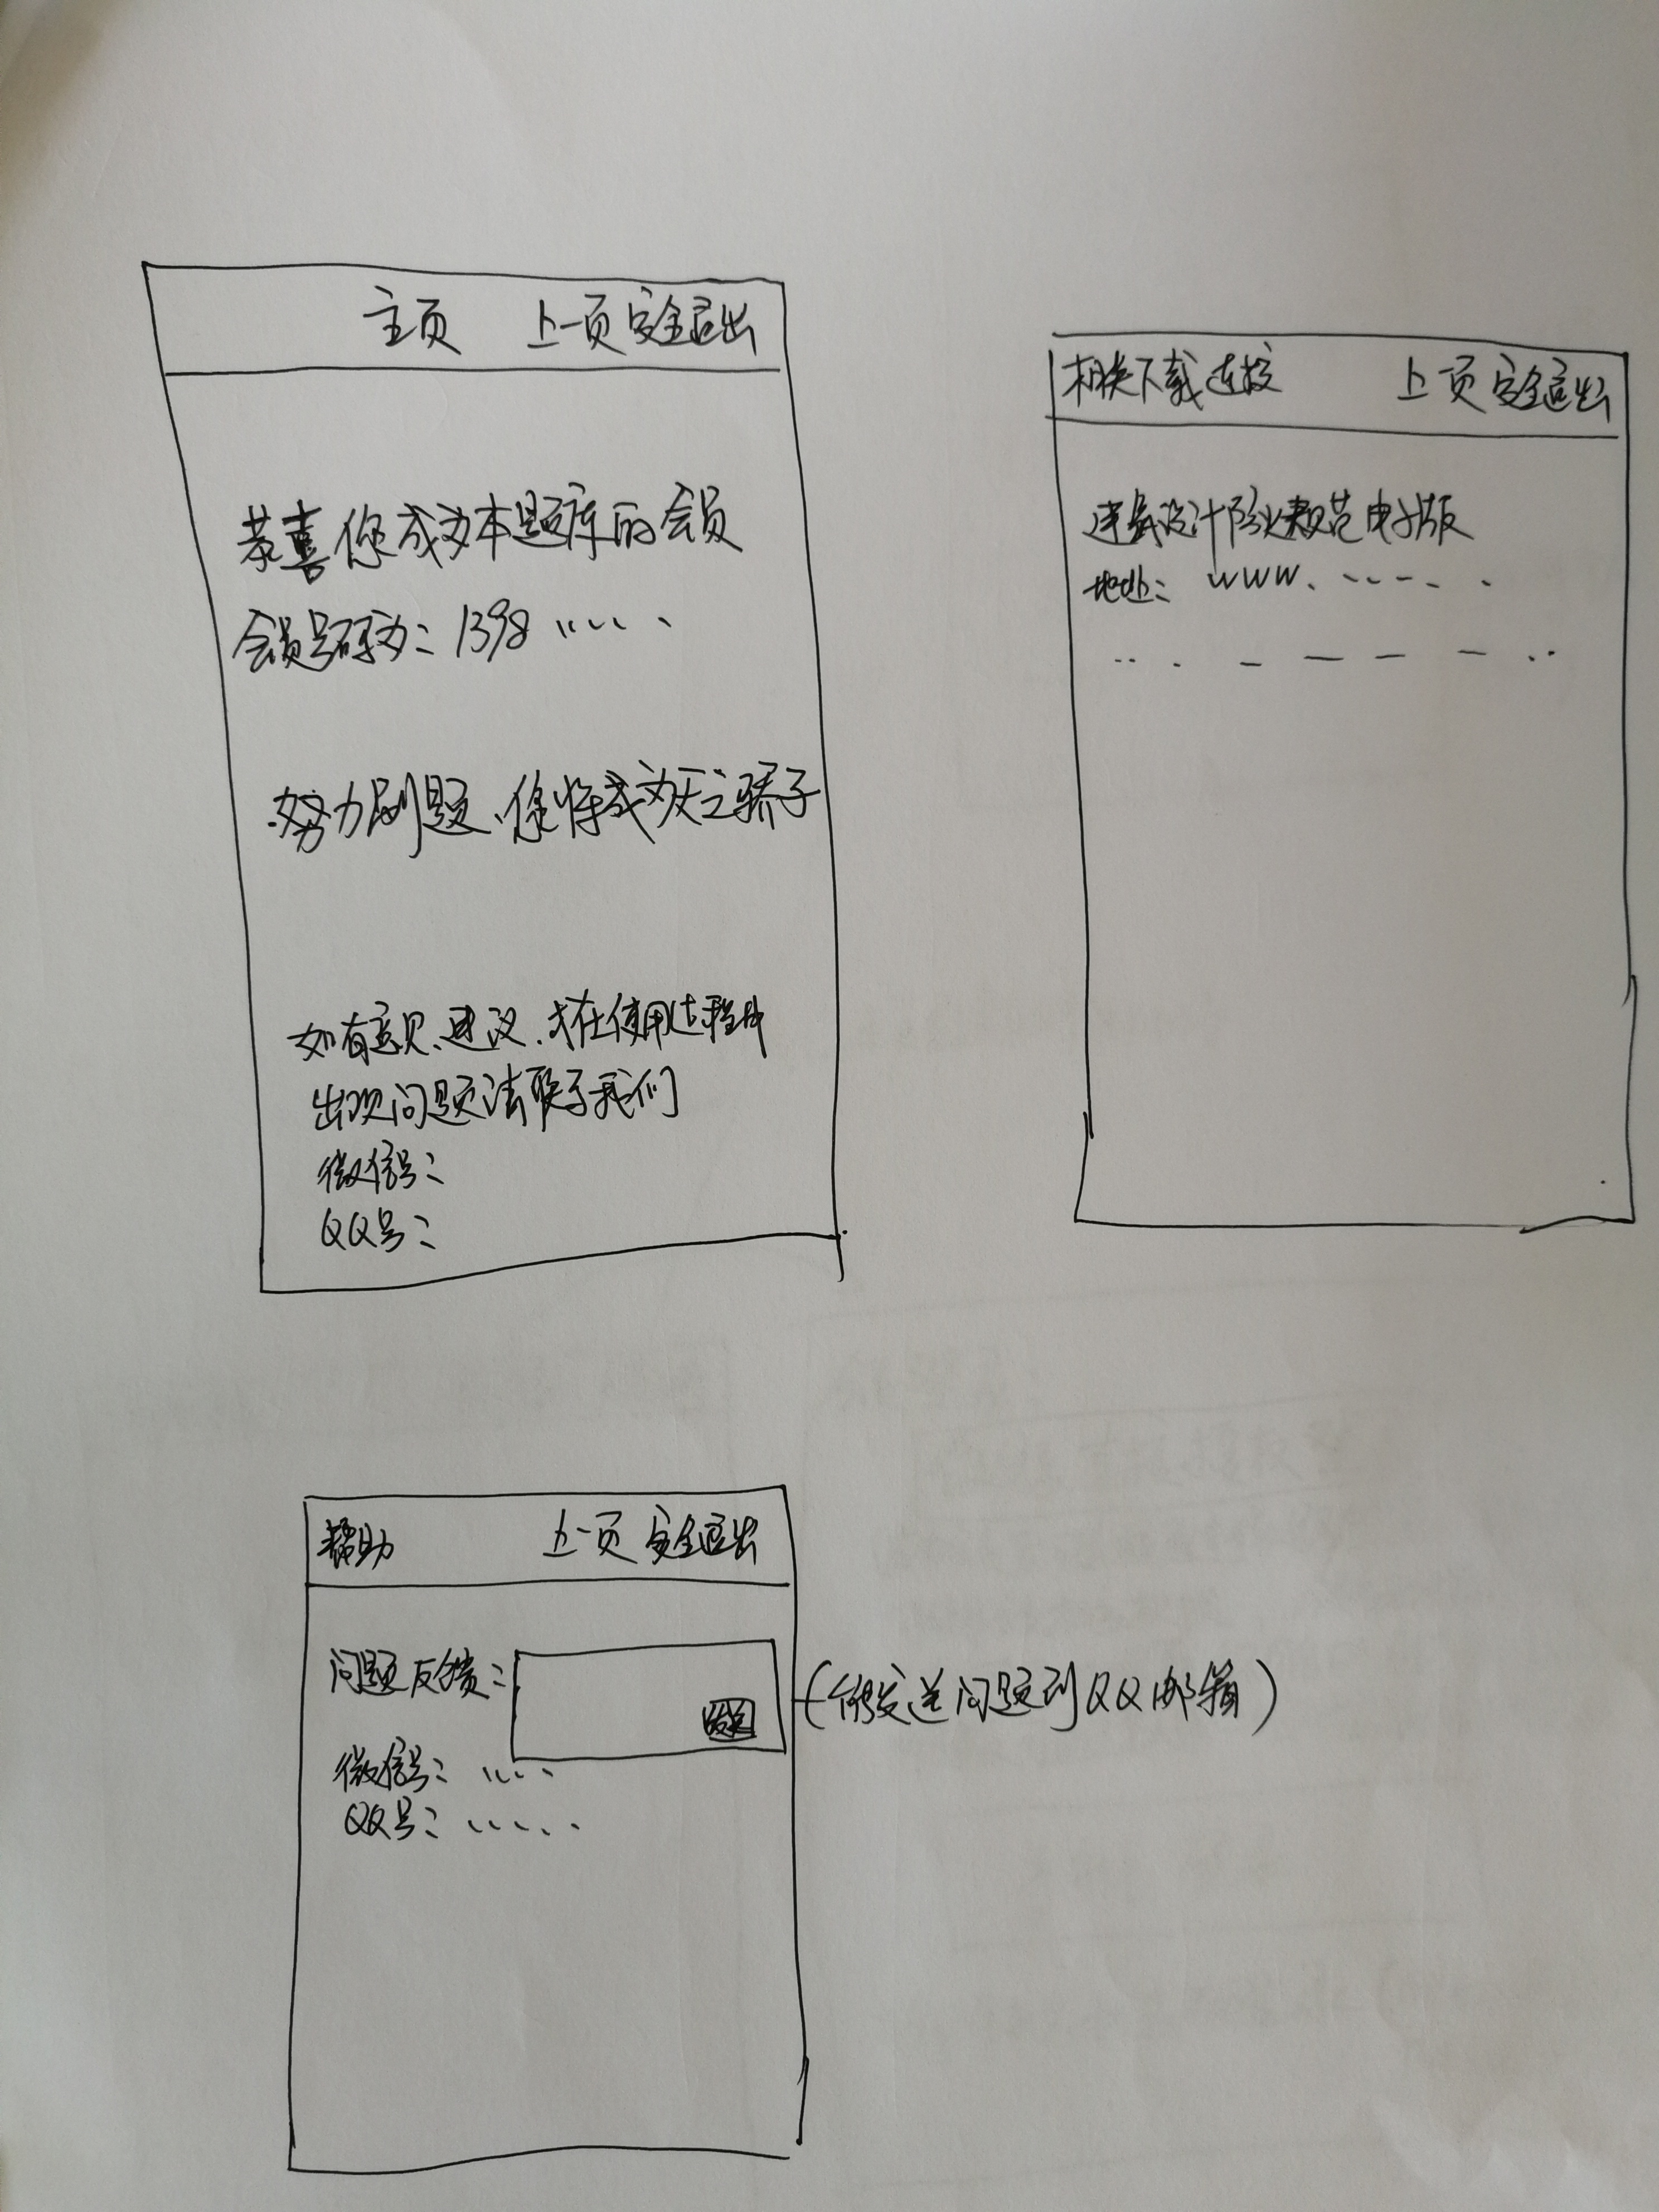 主页 上一页 安全退出
恭喜你成为本题库的会员
会员号码为：1398 ......
努力刷题、你将成为天之骄子
如有意见、建议、或在使用过程中
出现问题请联系我们
微信号：
QQ号：
相关下载连接 上一页 安全退出
建筑设计防火规范电子版
地址：www. ......
帮助 上一页 安全退出
问题反馈：
发送
(能发送问题到QQ邮箱)
微信号：....
QQ号：.....